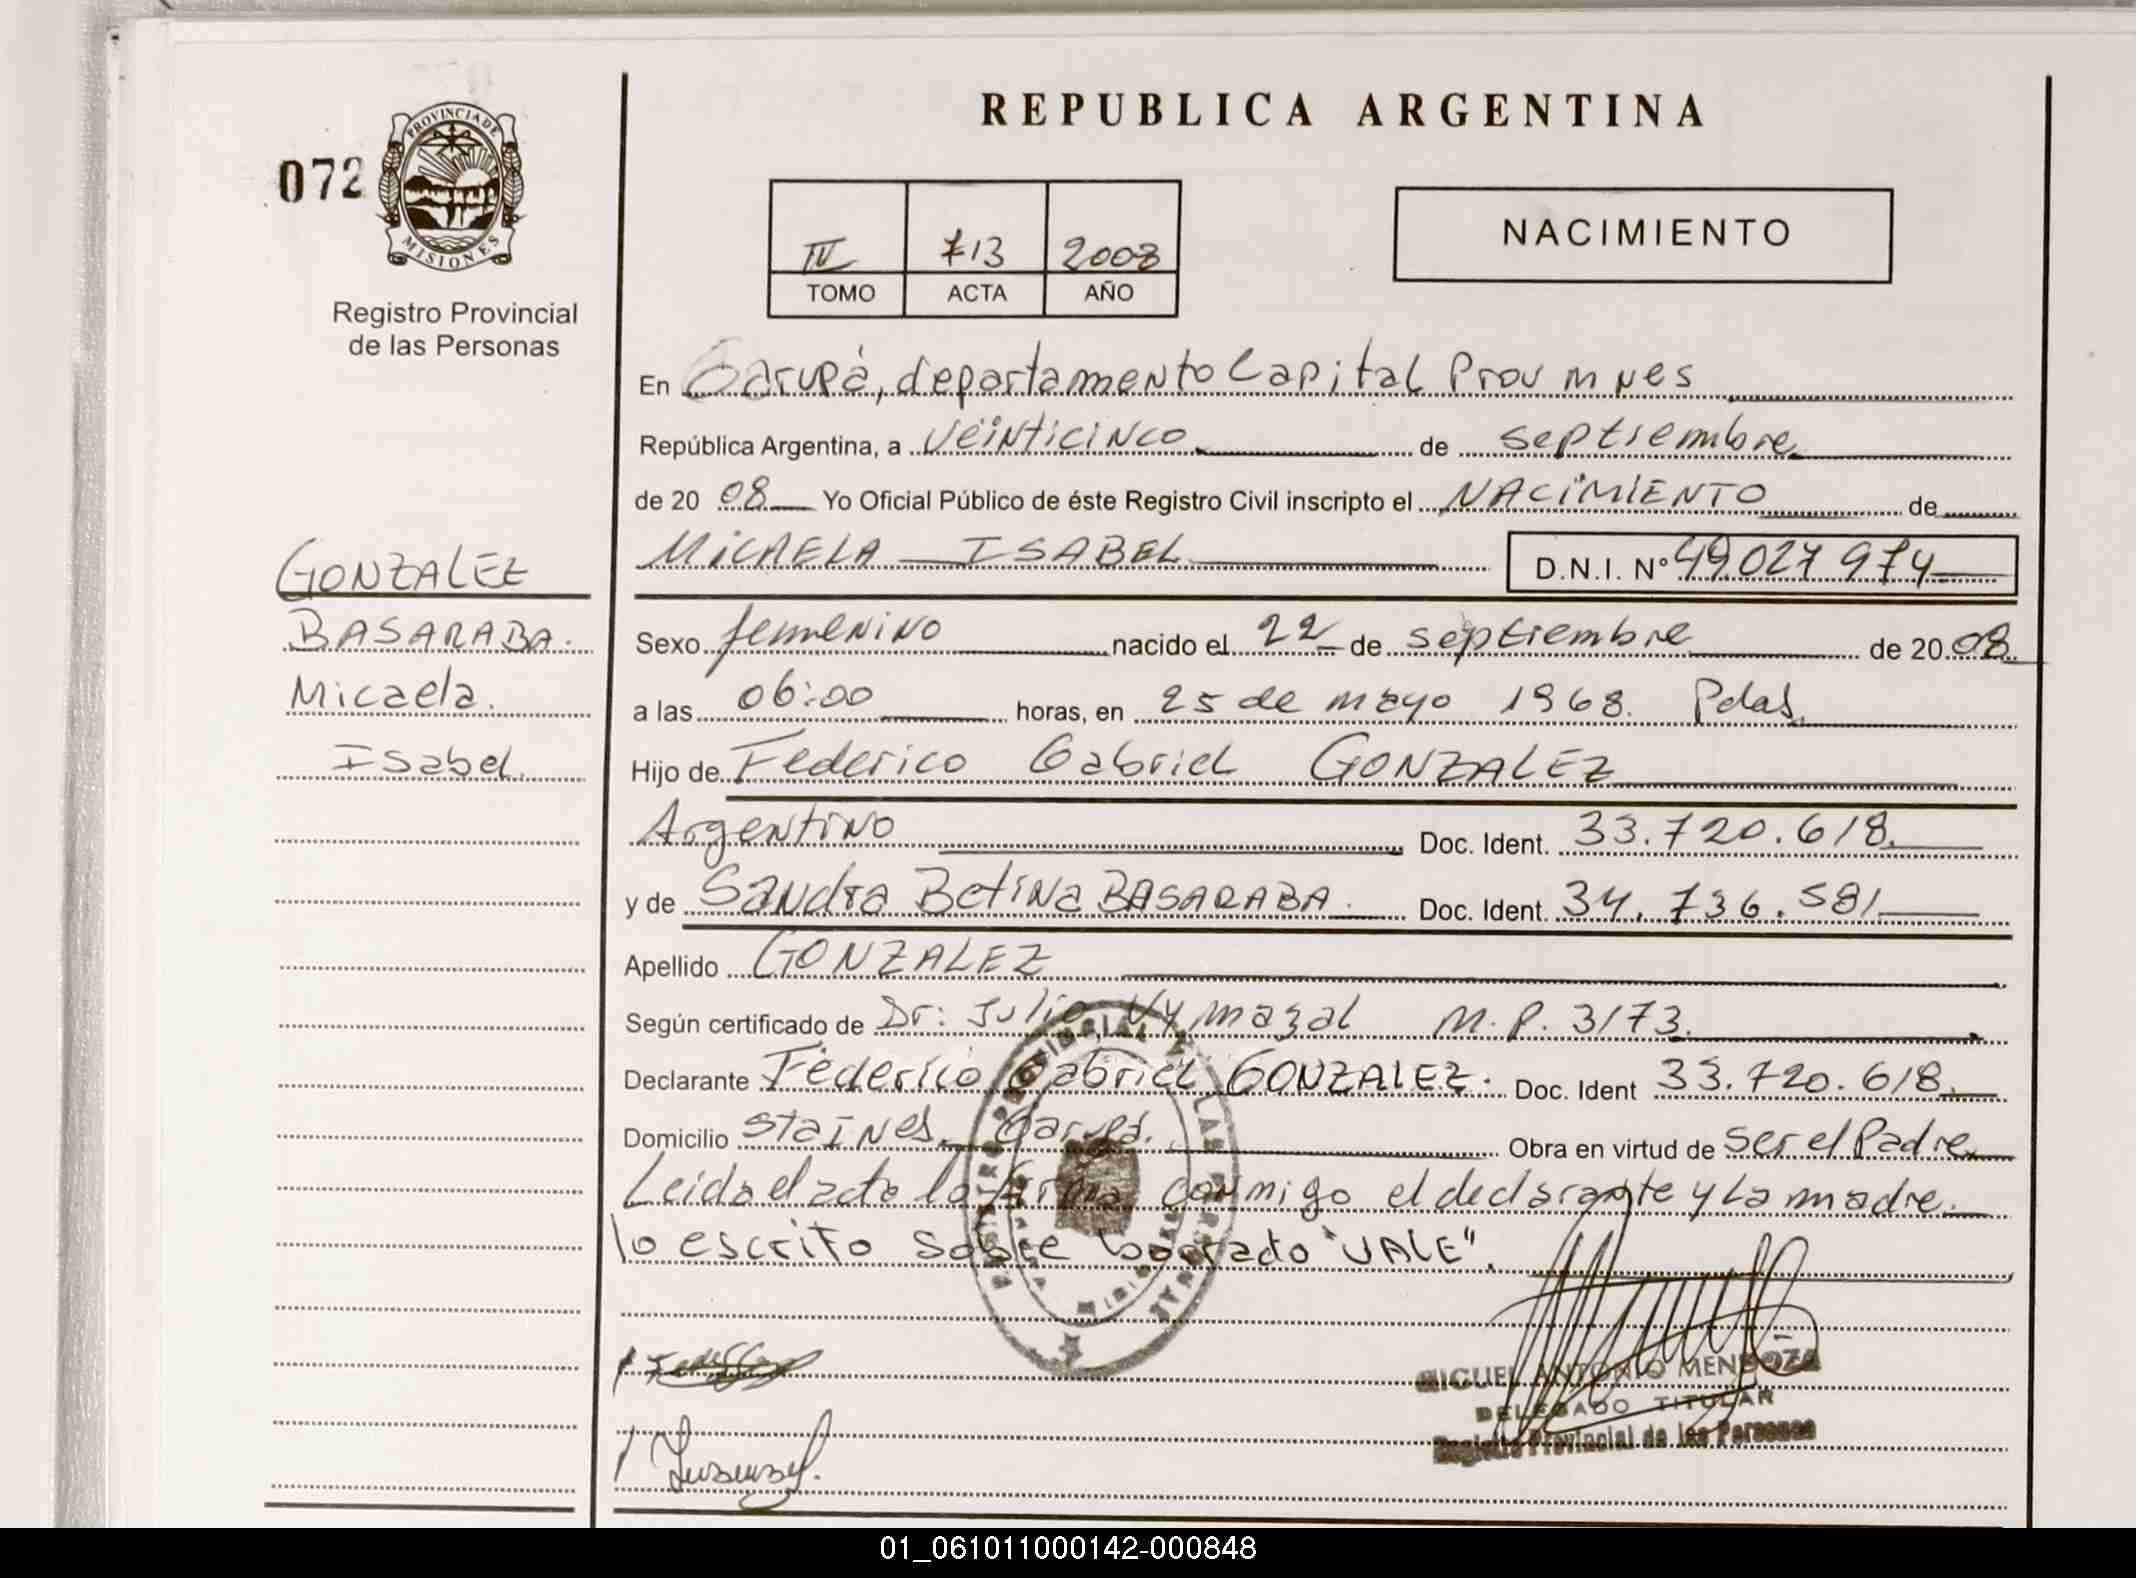 REPUBLICA ARGENTINA
072
PROVINCIA DE
MISIONES
Registro Provincial
de las Personas
IV 713 2008
TOMO ACTA AÑO
NACIMIENTO
En Garupá, departamento Capital Prov mnes
República Argentina, a veinticinco de septiembre
de 20 08 Yo Oficial Público de éste Registro Civil inscripto el NACIMIENTO de
MICAELA ISABEL D.N.I. Nº 49.027 974
GONZALEZ
BASARABA.
Micaela.
Isabel.
Sexo femenino nacido el 22 de septiembre de 20 08
a las 06:00 horas, en 25 de mayo 1968. Pdas.
Hijo de Federico Gabriel GONZALEZ
Argentino Doc. Ident. 33.720.618.
y de Sandra Betina BASARABA. Doc. Ident. 34.736.581
Apellido GONZALEZ
Según certificado de Dr: Julio Vymazal M.P. 3173.
Declarante Federico Gabriel GONZALEZ. Doc. Ident 33.720.618.
Domicilio Staines. Garupá. Obra en virtud de ser el Padre.
Leida el acta la firma conmigo el declarante y la madre.
lo escrito sobre borrado "VALE".
MIGUEL ANTONIO MENDOZA
DELEGADO TITULAR
Registro Provincial de las Personas
01_061011000142-000848